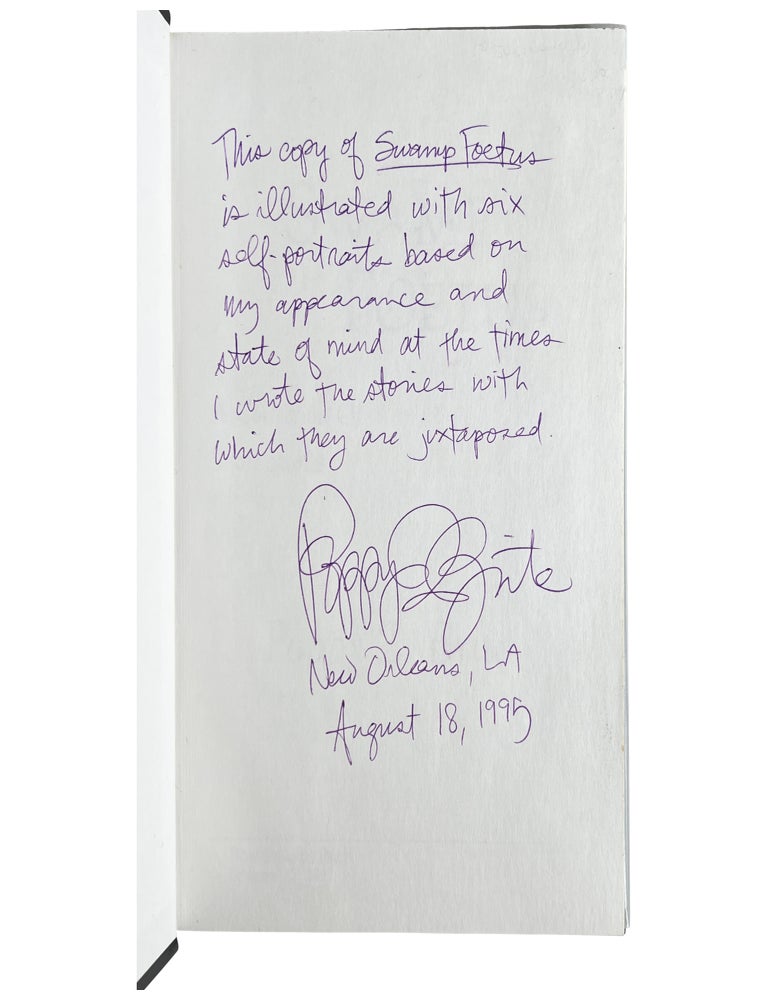 This copy of Swamp Foetus
is illustrated with six
self-portraits based on
my appearance and
state of mind at the times
I wrote the stories with
which they are juxtaposed.
Poppy Z Brite
New Orleans, LA
August 18, 1995